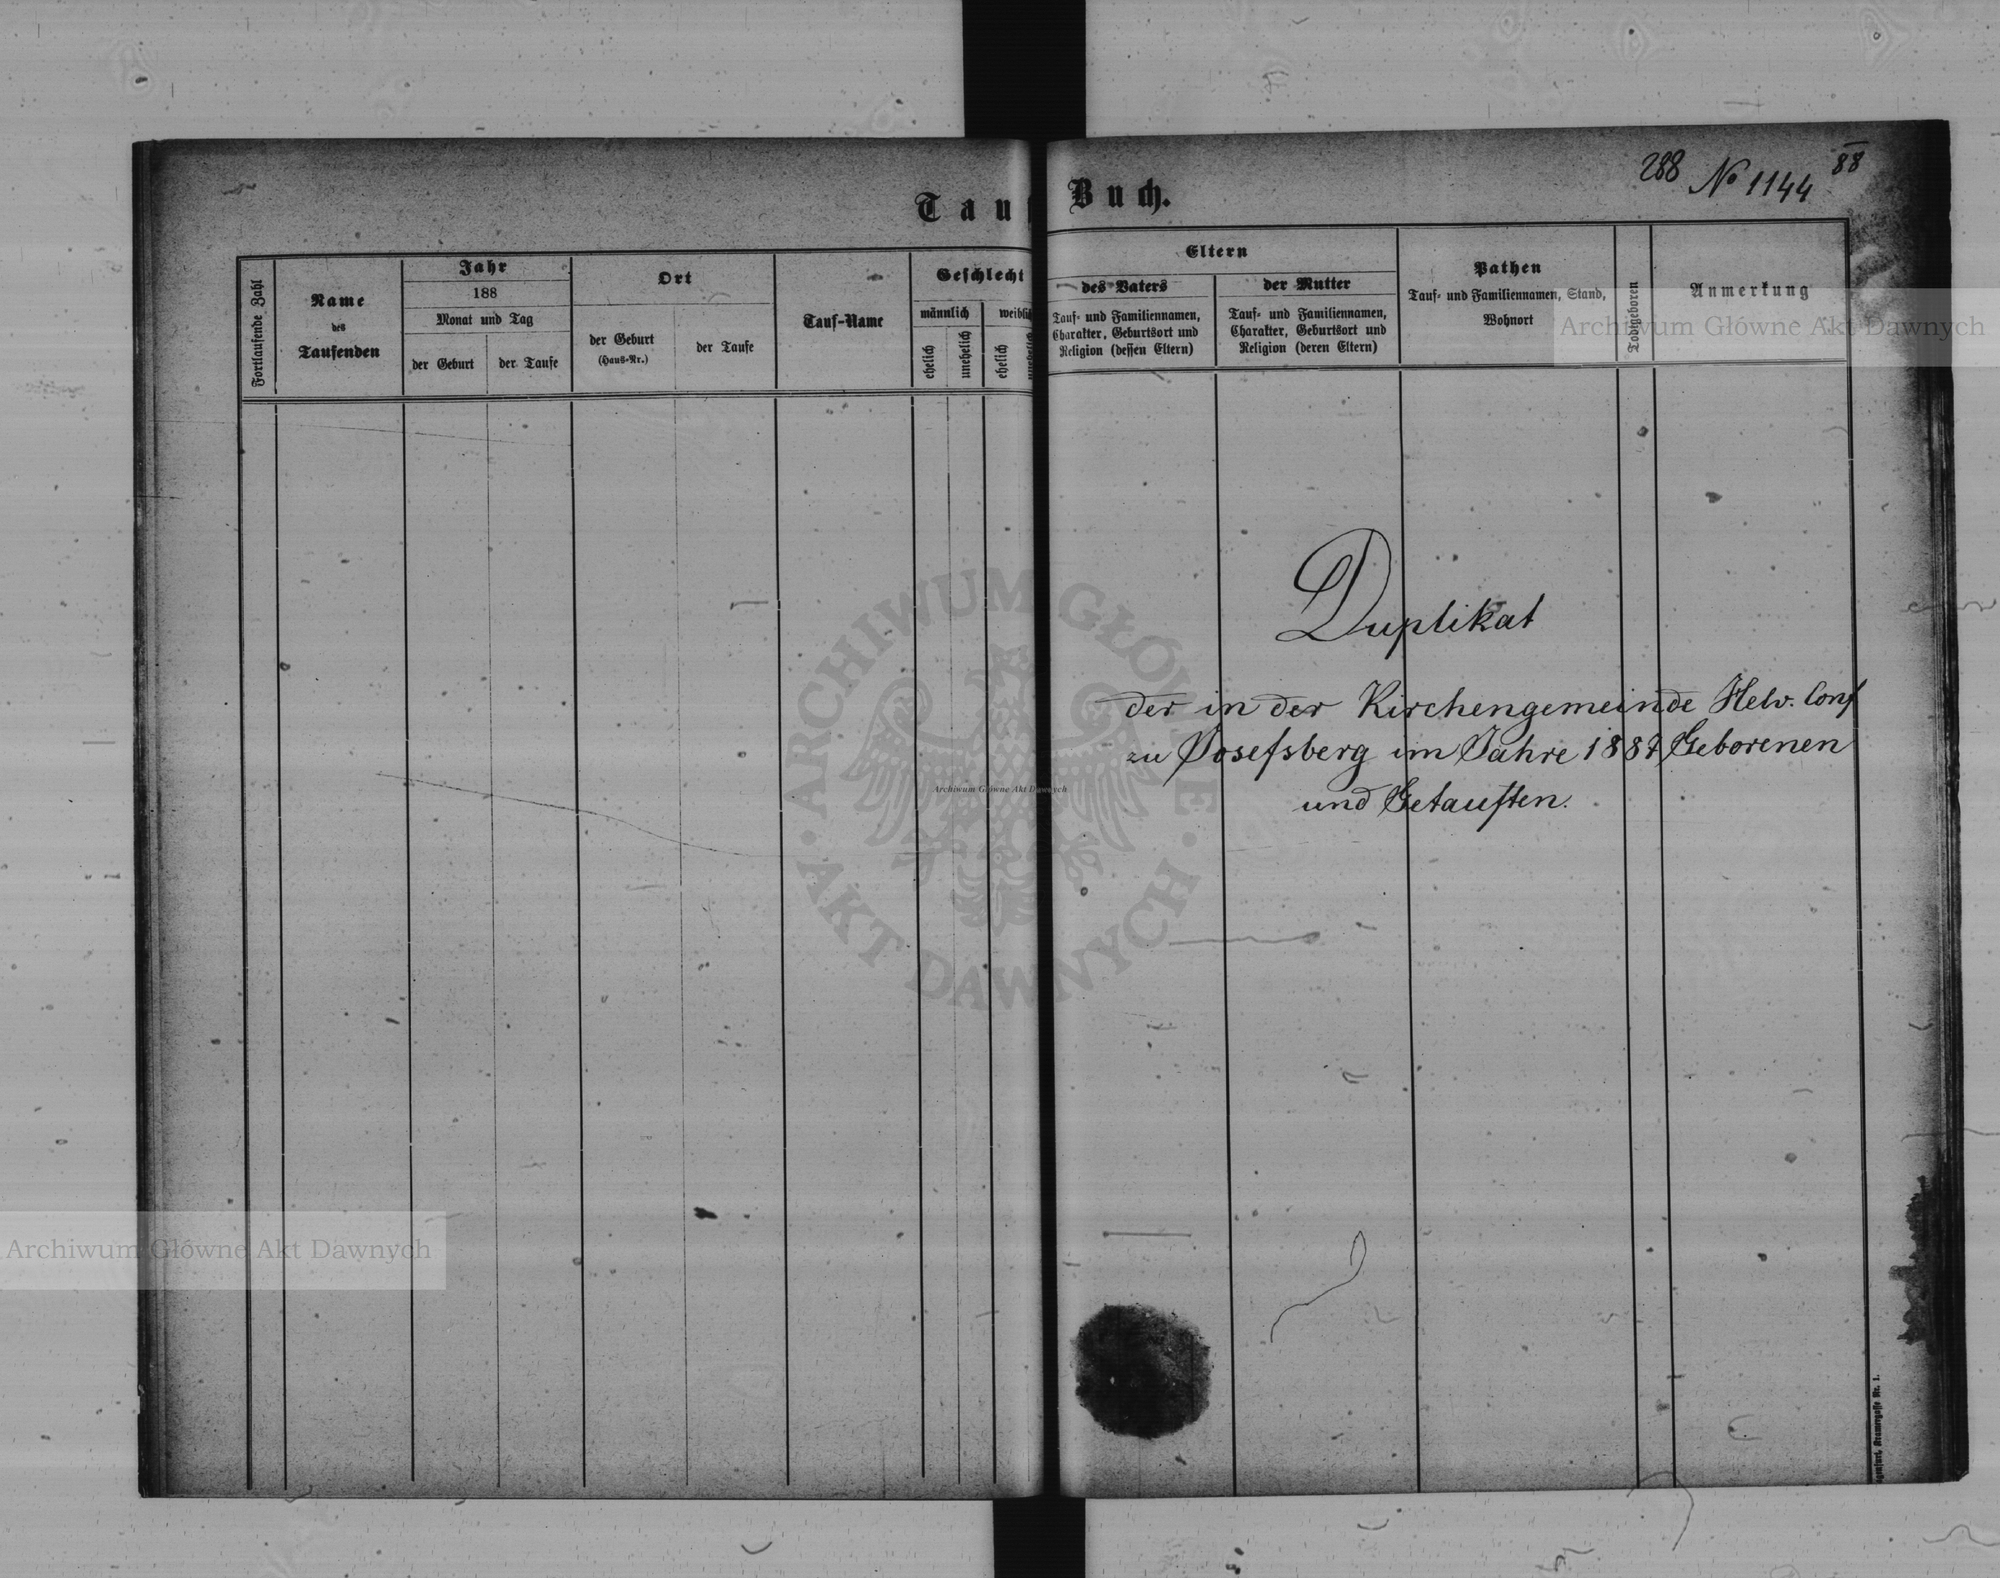 Tauf Buch.
288 No 1144 88
Fortlaufende Zahl
Name
des
Taufenden
Jahr
188
Monat und Tag
der Geburt
der Taufe
Ort
der Geburt
(Haus-Nr.)
der Taufe
Tauf-Name
Geschlecht
männlich
weiblich
ehelich
unehelich
ehelich
unehelich
Eltern
des Vaters
Tauf- und Familiennamen,
Charakter, Geburtsort und
Religion (dessen Eltern)
der Mutter
Tauf- und Familiennamen,
Charakter, Geburtsort und
Religion (deren Eltern)
Pathen
Tauf- und Familiennamen, Stand,
Wohnort
Todtgeboren
Anmerkung
Archiwum Główne Akt Dawnych
Duplikat
der in der Kirchengemeinde Helv. Conf
zu Josefsberg im Jahre 1887 Geborenen
und Getauften.
ARCHIWUM GŁÓWNE
AKT DAWNYCH
Archiwum Główne Akt Dawnych
Archiwum Główne Akt Dawnych
Nr. 1.